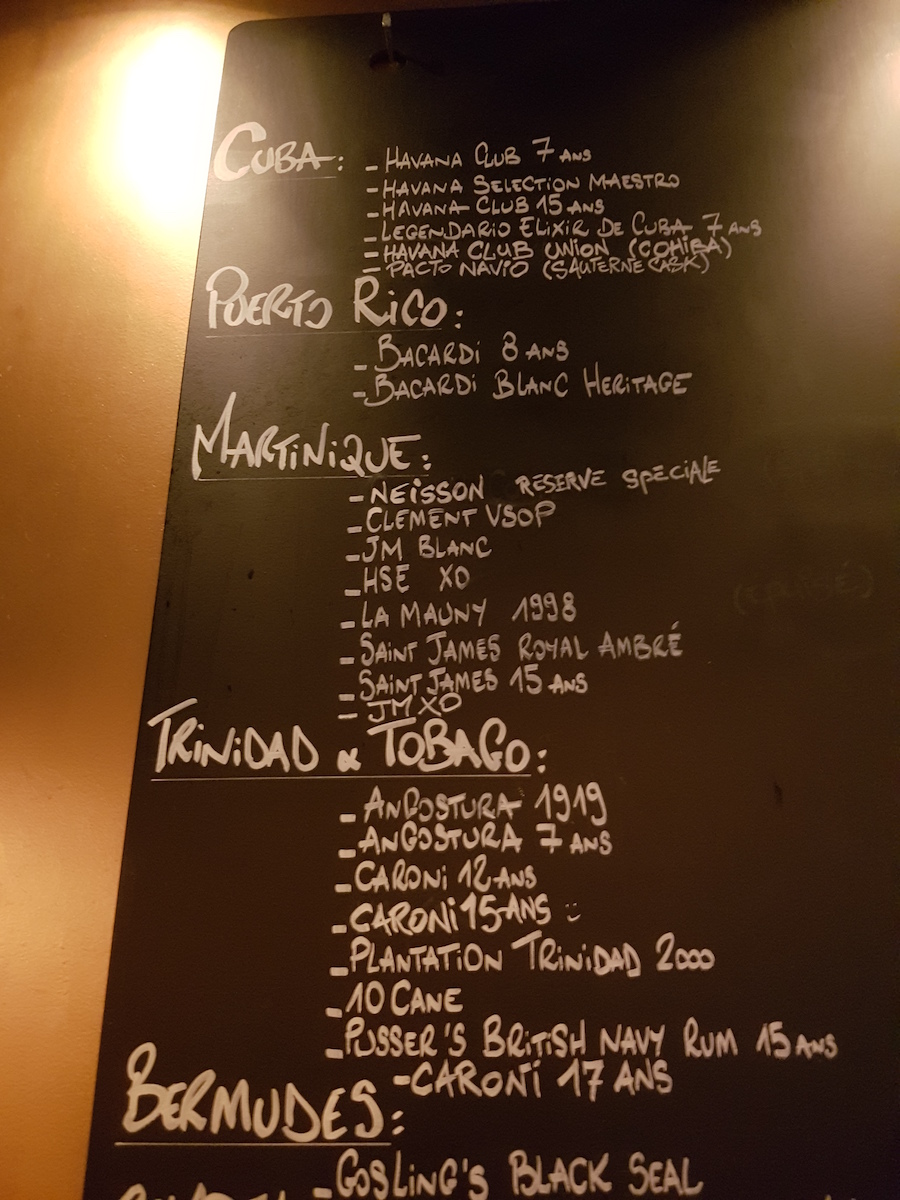 CUBA: - HAVANA CLUB 7 ANS
- HAVANA SELECTION MAESTRO
- HAVANA CLUB 15 ANS
- LEGENDARIO ELIXIR DE CUBA 7 ANS
- HAVANA CLUB UNION (COHIBA)
- PACTO NAVIO (SAUTERNE CASK)
PUERTO RICO:
- BACARDI 8 ANS
- BACARDI BLANC HERITAGE
MARTINIQUE:
- NEISSON RESERVE SPECIALE
- CLEMENT VSOP
- JM BLANC
- HSE XO
- LA MAUNY 1998
- SAINT JAMES ROYAL AMBRÉ
- SAINT JAMES 15 ANS
- JM XO
TRINIDAD & TOBAGO:
- ANGOSTURA 1919
- ANGOSTURA 7 ANS
- CARONI 12 ANS
- CARONI 15 ANS :)
- PLANTATION TRINIDAD 2000
- 10 CANE
- PUSSER'S BRITISH NAVY RUM 15 ANS
- CARONI 17 ANS
BERMUDES:
- GOSLING'S BLACK SEAL